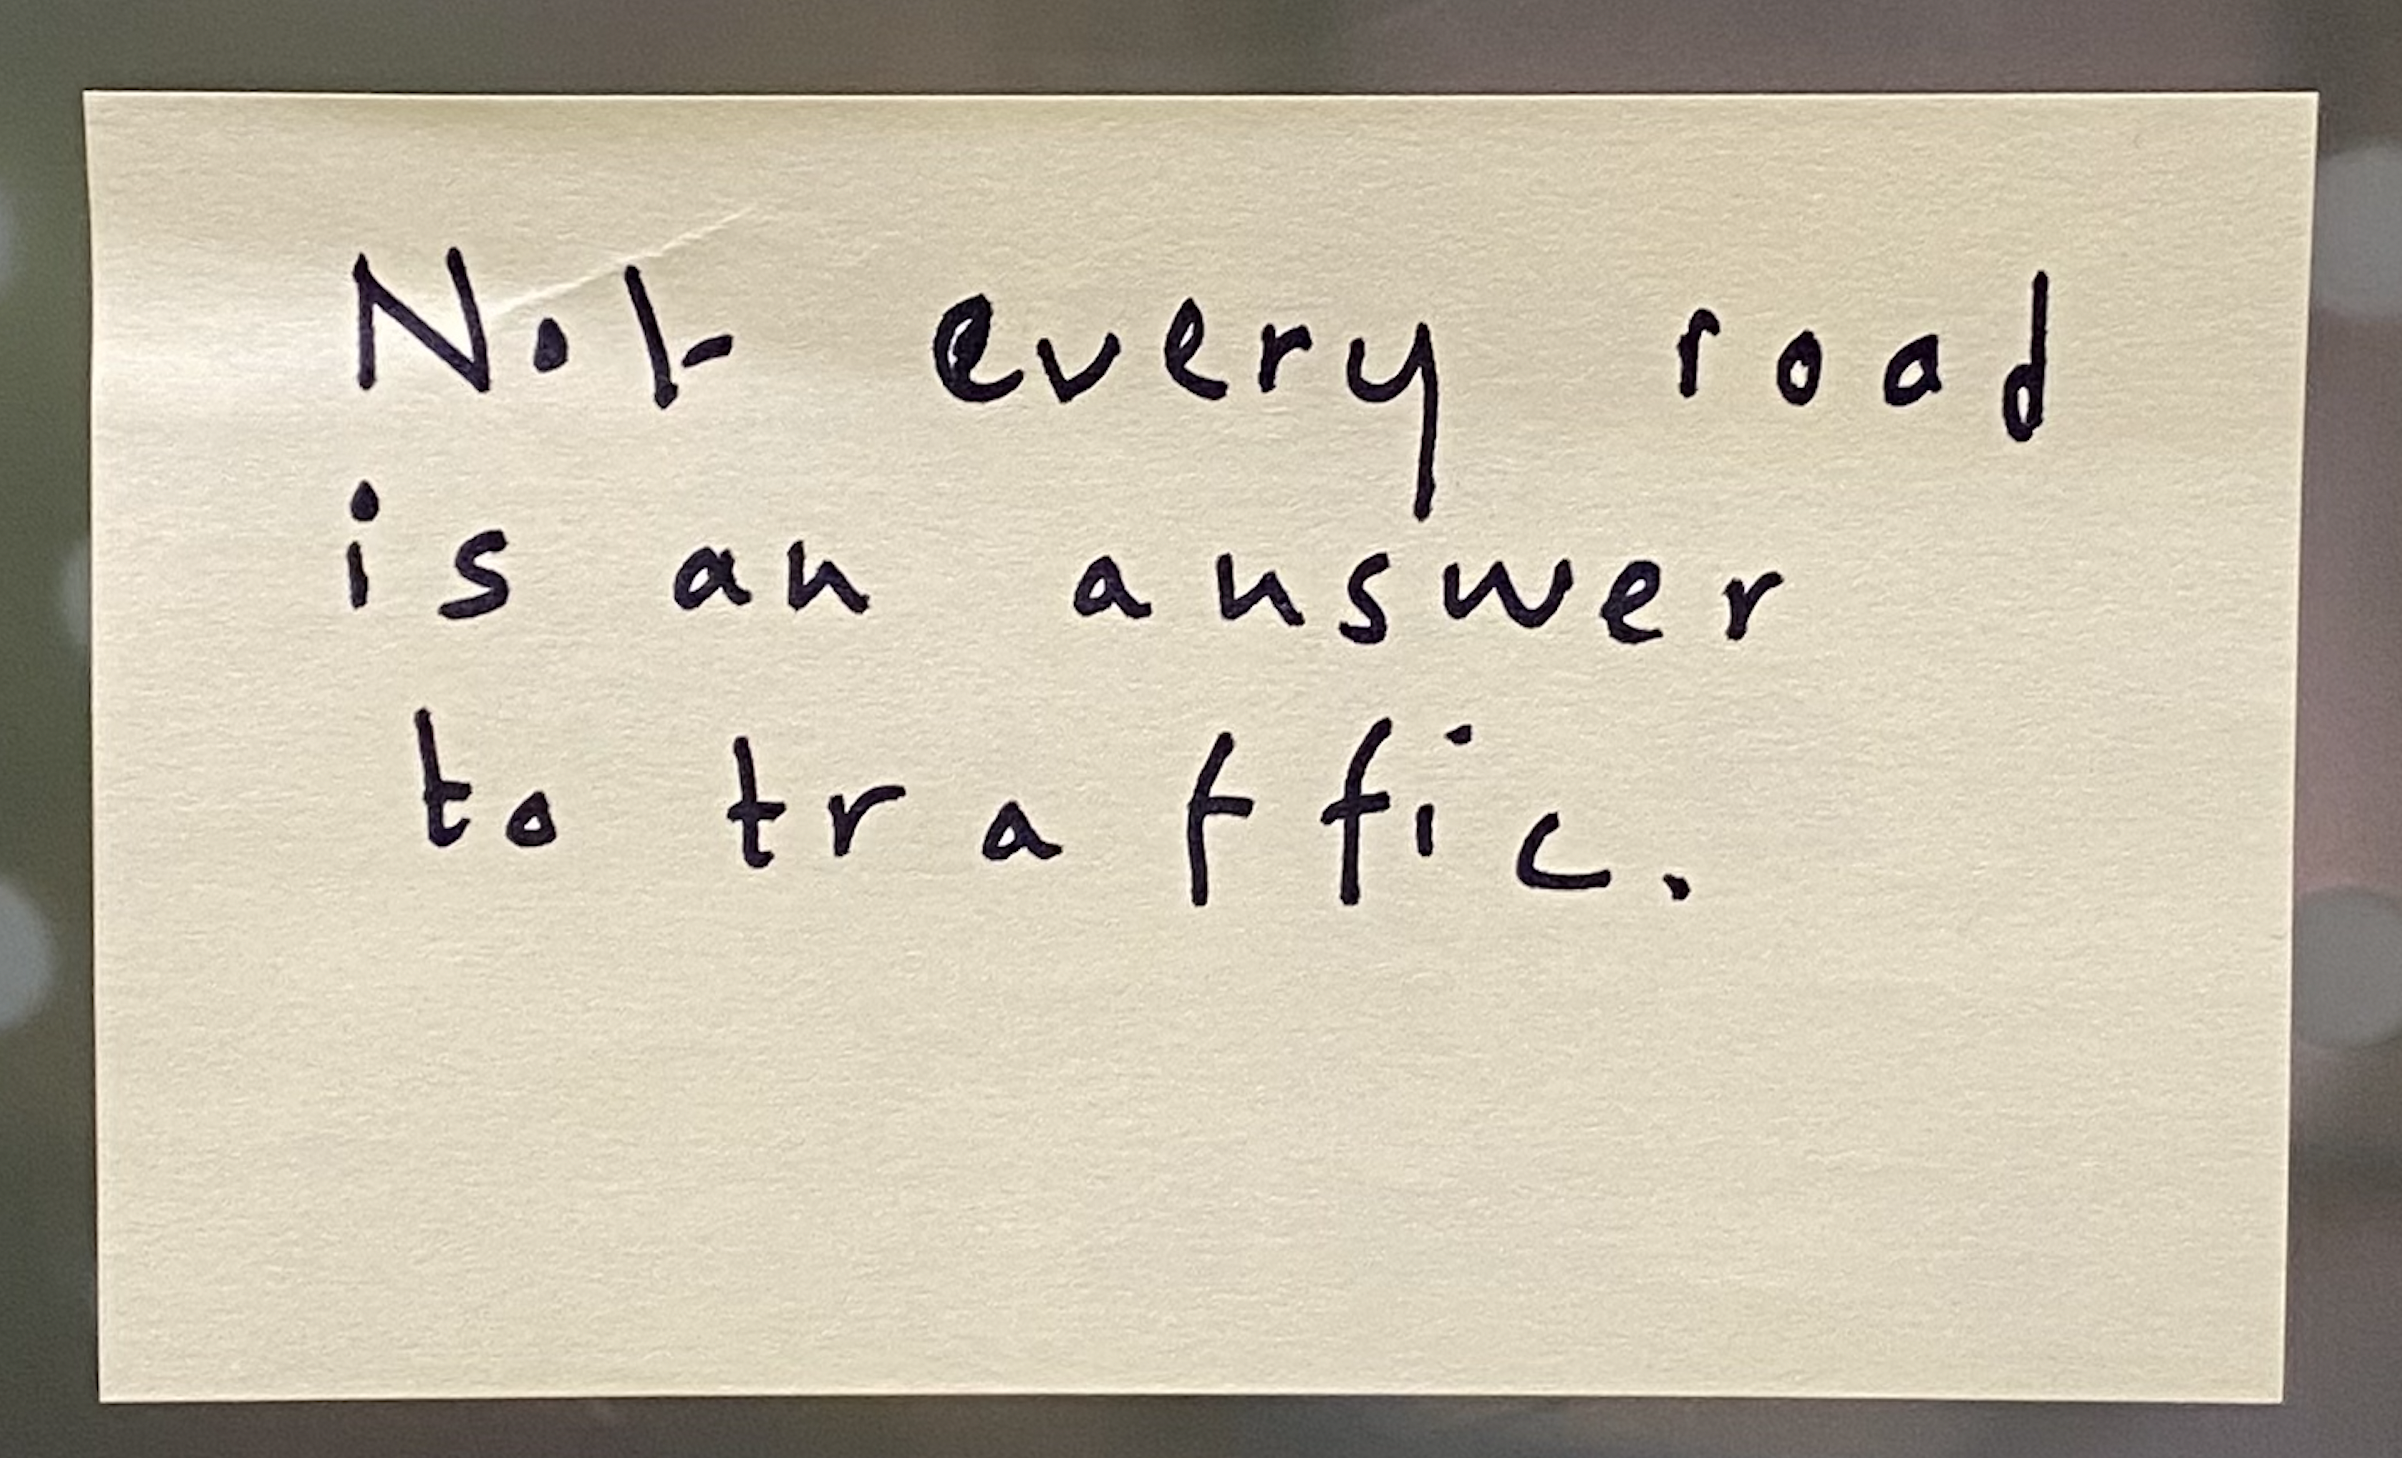 Not every road
is an answer
to traffic.